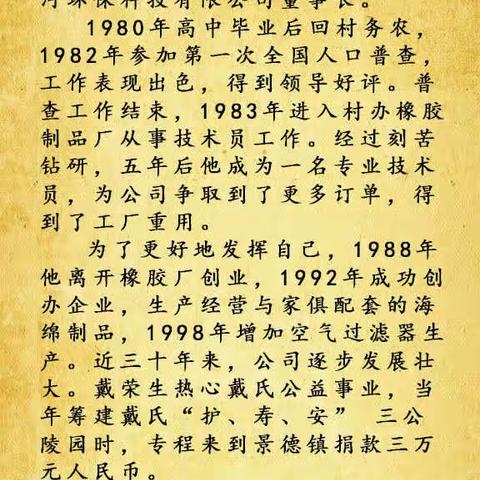 河环保科技有限公司董事长。
1980年高中毕业后回村务农，
1982年参加第一次全国人口普查，
工作表现出色，得到领导好评。普
查工作结束，1983年进入村办橡胶
制品厂从事技术员工作。经过刻苦
钻研，五年后他成为一名专业技术
员，为公司争取到了更多订单，得
到了工厂重用。
为了更好地发挥自己，1988年
他离开橡胶厂创业，1992年成功创
办企业，生产经营与家俱配套的海
绵制品，1998年增加空气过滤器生
产。近三十年来，公司逐步发展壮
大。戴荣生热心戴氏公益事业，当
年筹建戴氏“护、寿、安” 三公
陵园时，专程来到景德镇捐款三万
元人民币。